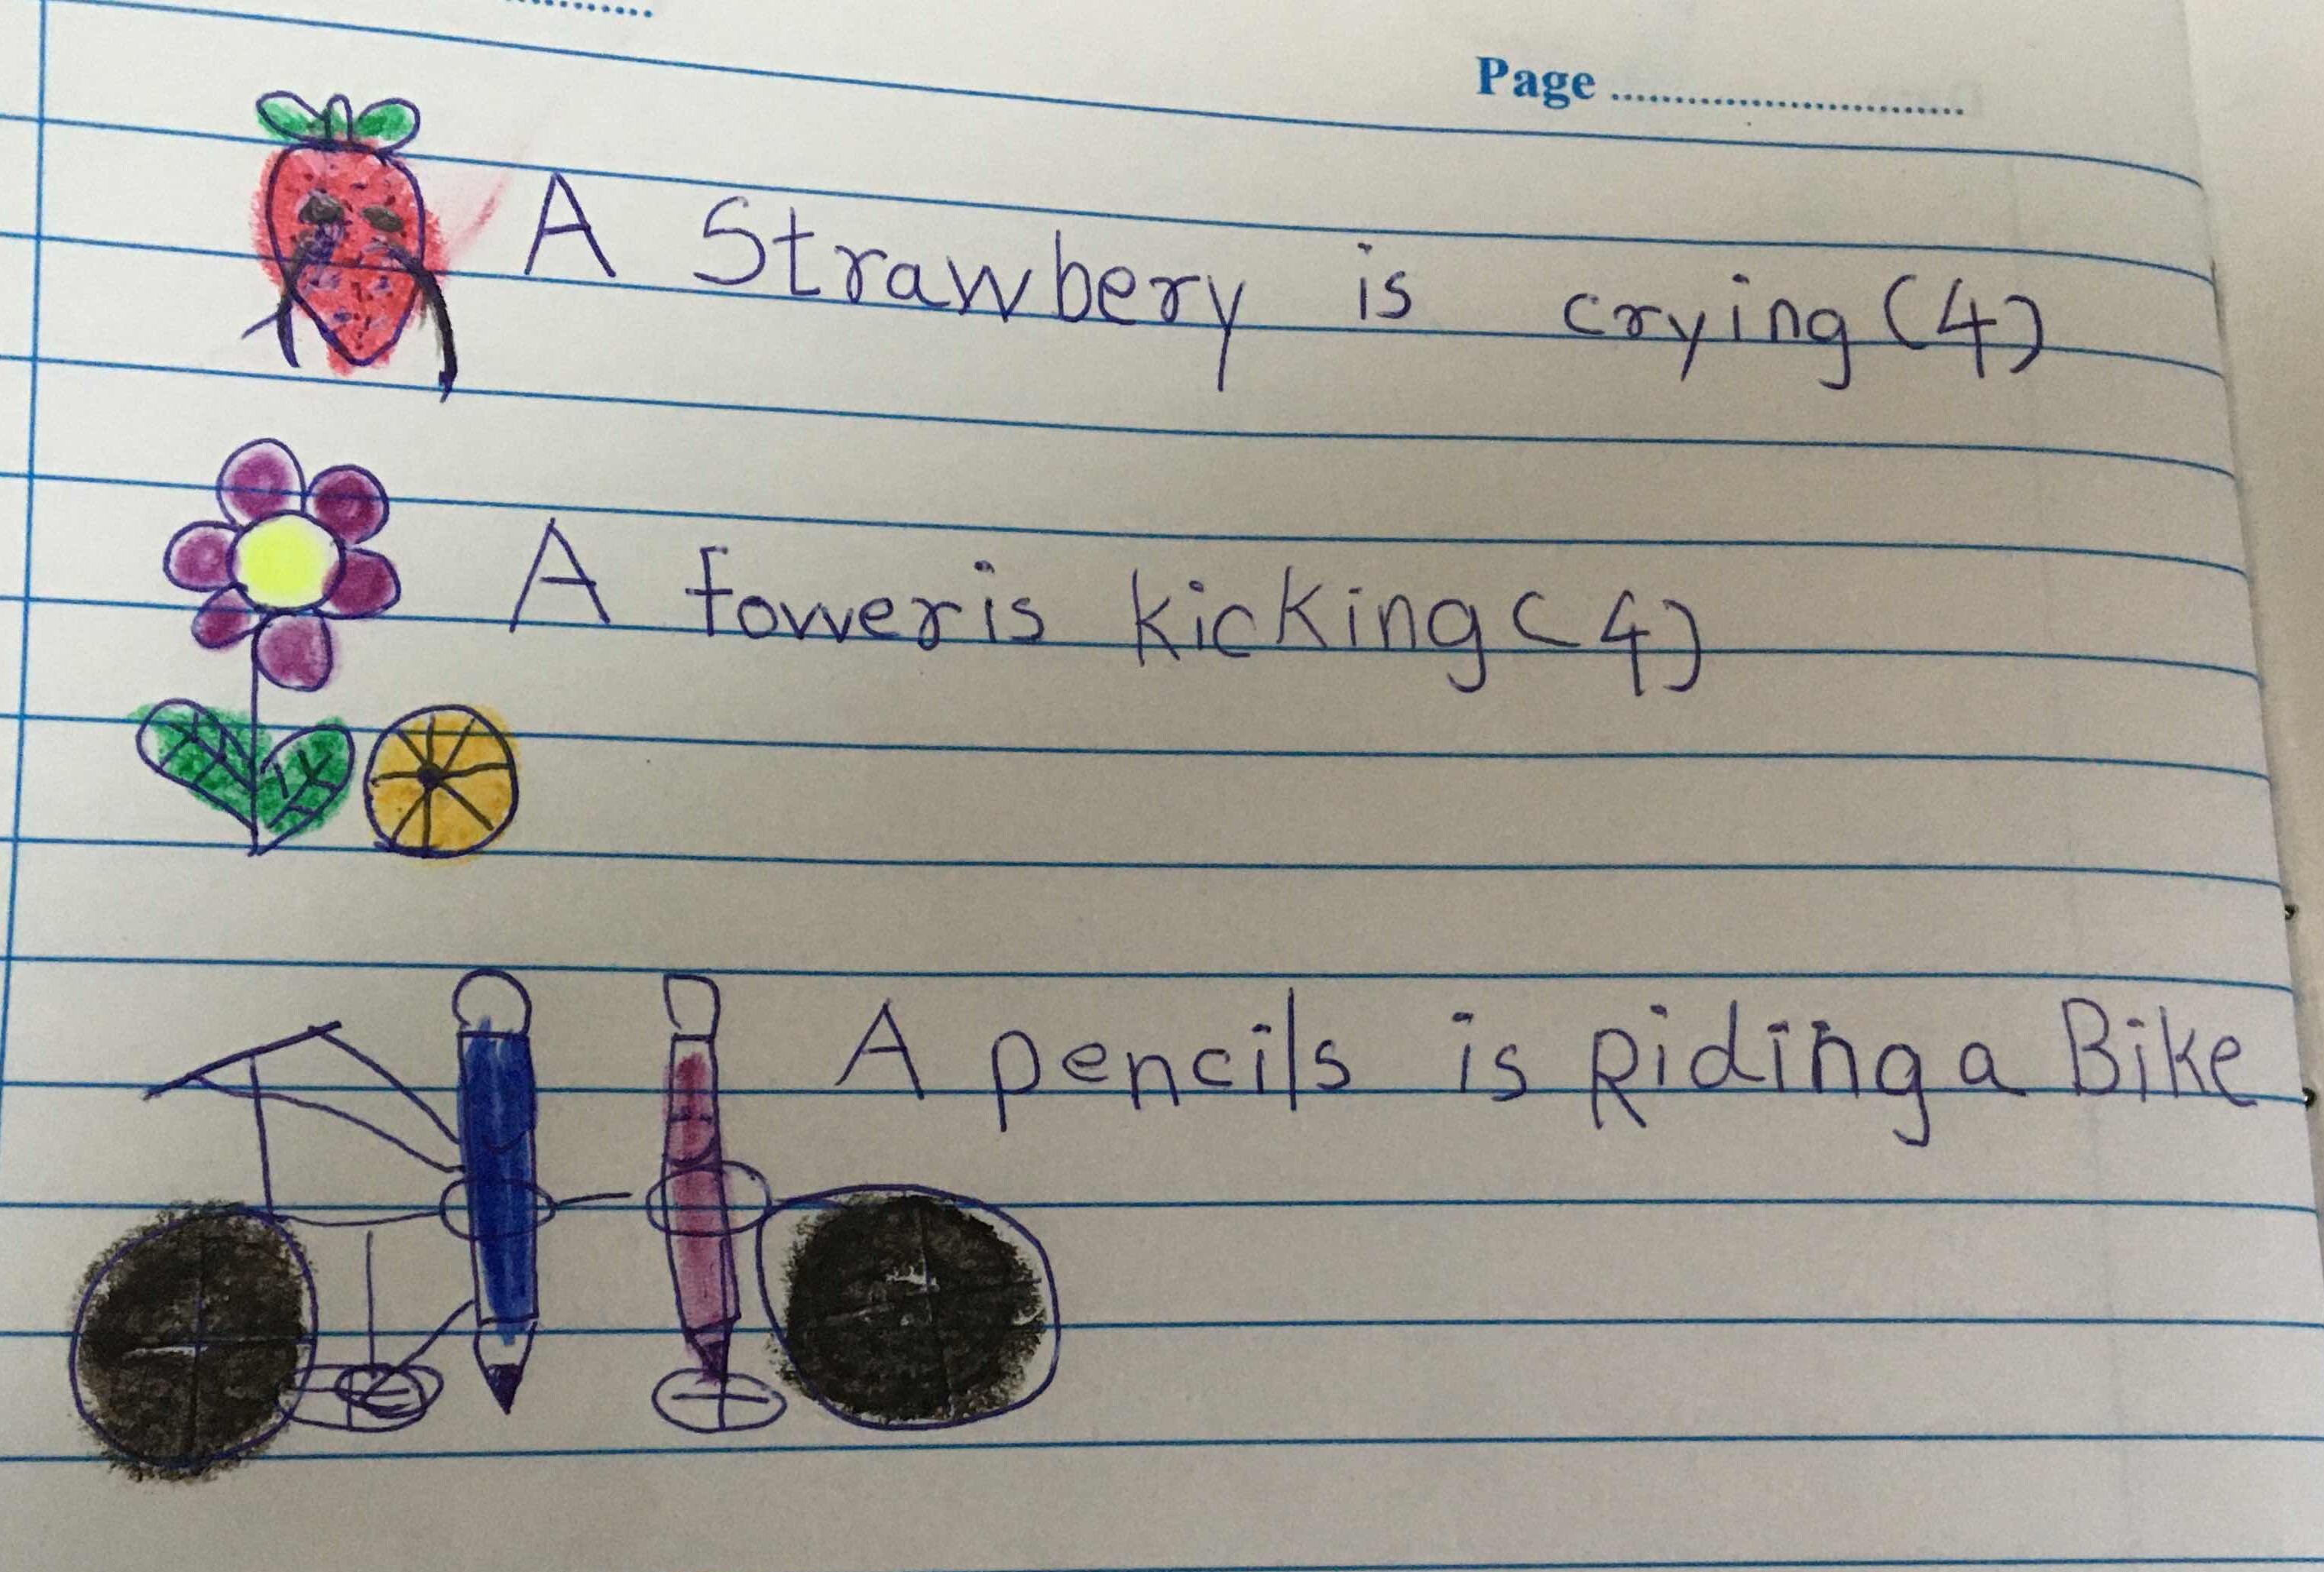 Page
A Strawbery is crying (4)
A fowveris kicking (4)
A pencils is Riding a Bike